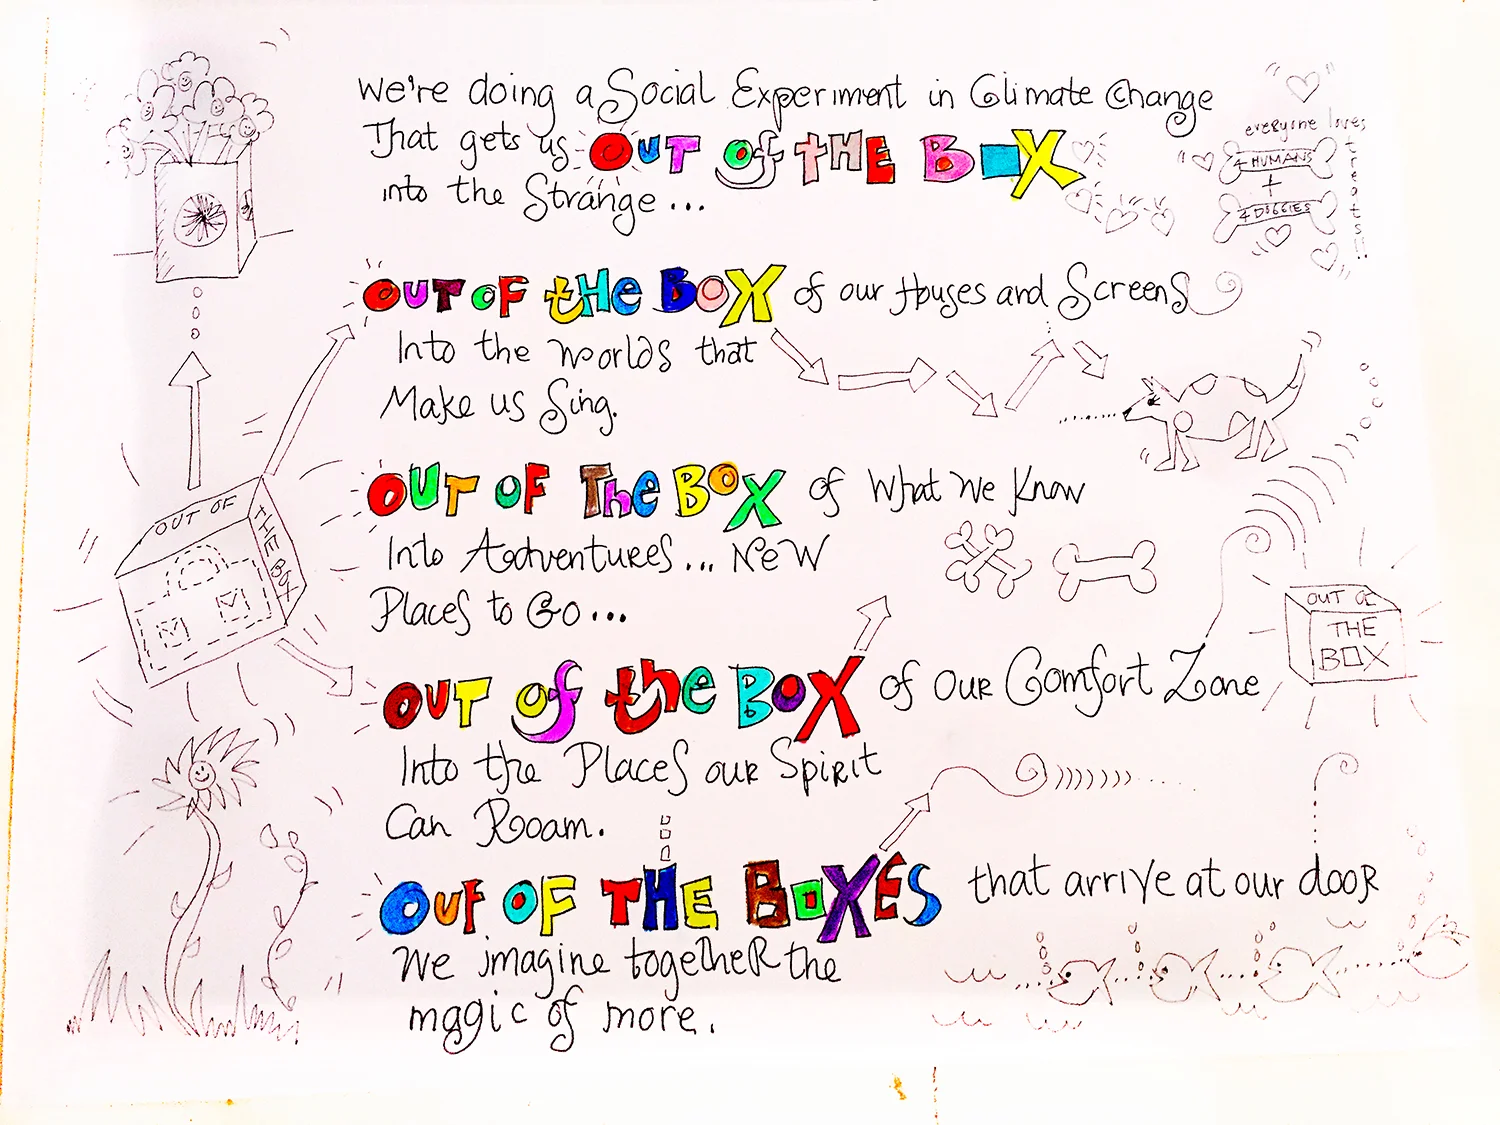 We're doing a Social Experiment in Climate Change
That gets us OUT Of tHE BOX
into the Strange...
OUT OF tHe BOX of our Houses and Screens
Into the worlds that
Make us Sing.
OUT OF The BOX of What We Know
Into Adventures... New
Places to Go...
OUT of the BOX of our Comfort Zone
Into the Places our Spirit
Can Roam.
OUT OF THE BOXES that arrive at our door
We imagine together the
magic of more.
everyone loves
treats!!
4 HUMANS
+
4 DOGGIES
OUT OF
THE BOX
OUT OF
THE
BOX